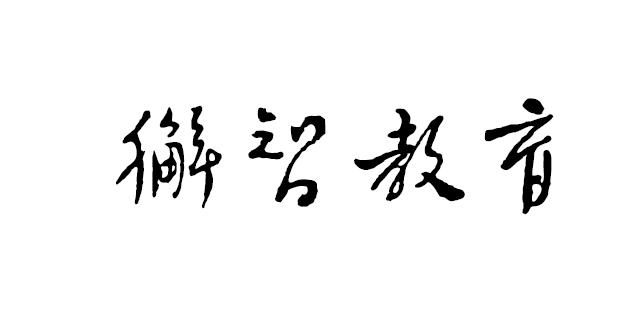 獬智教育